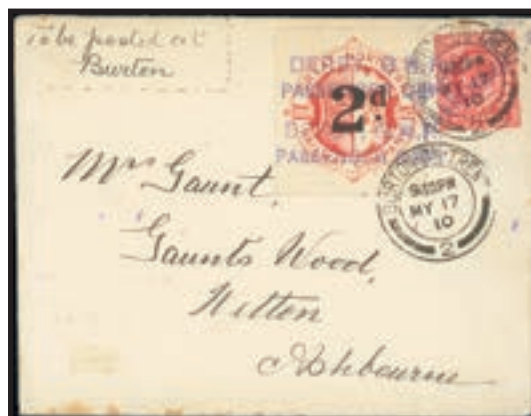 to be posted at
Burton
DERBY G.N.
2d.
PASSENGER
BURTON-ON-TRENT
9.15PM
MY 17
10
2
Mrs Gaunt,
Gaunts Wood,
Hilton
Ashbourne